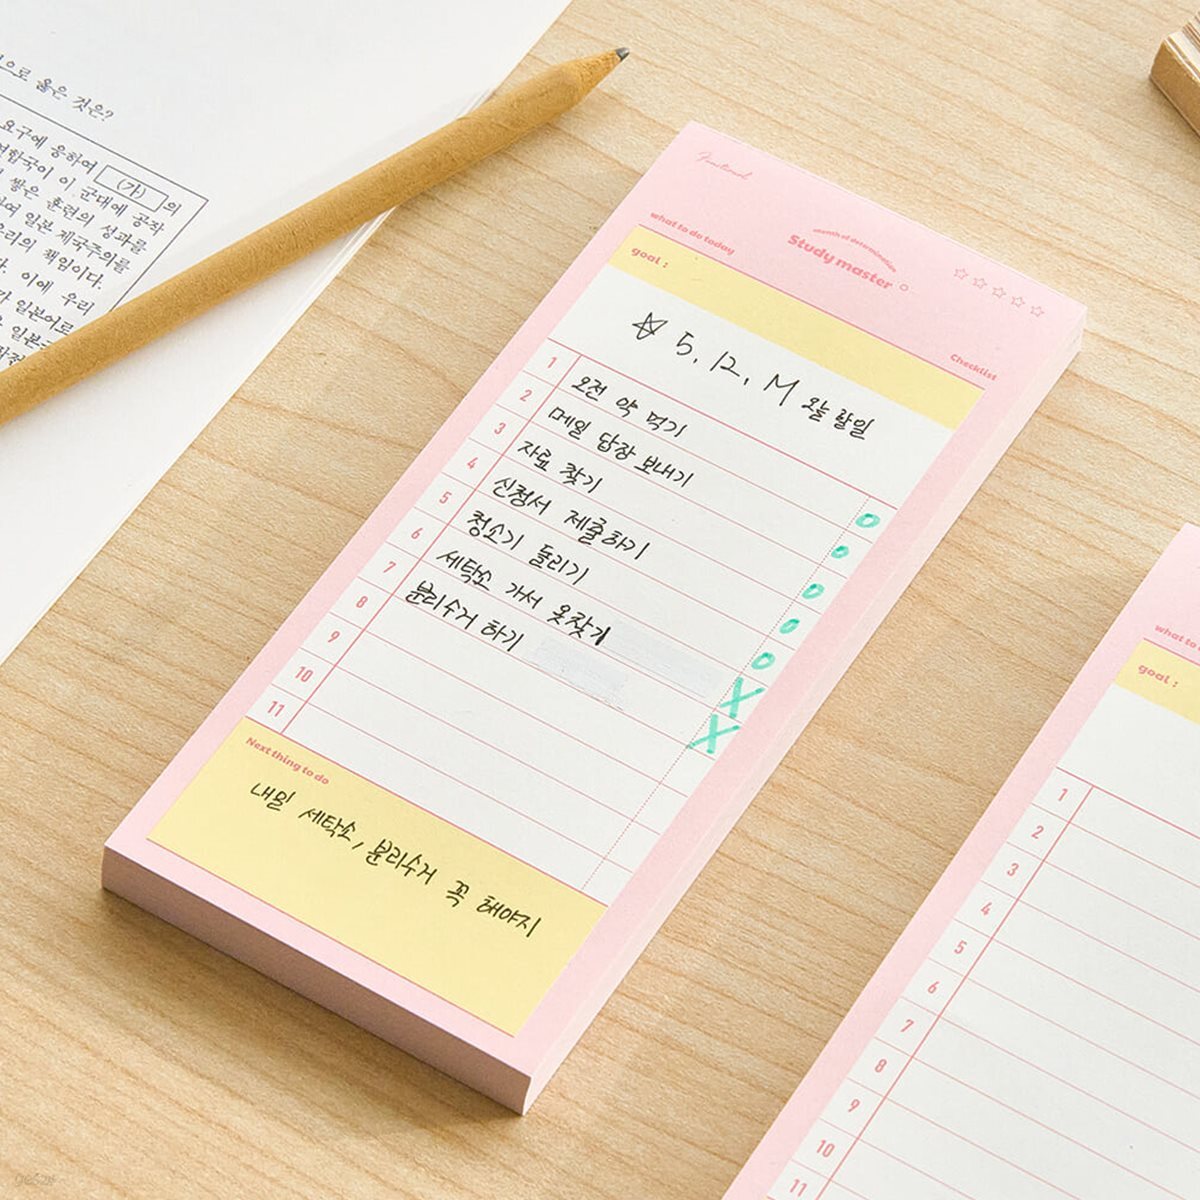 으로 옳은 것은?
요구에 응하여 (가) 의
연합국이 이 군대에 공작
쌓은 훈련의 성과를
하여 일본 제국주의를
우리의 책임이다.
다. 이에 우리
가 일본어로
일본
Functional
what to do today
month of determination
Study master
goal :
Checklist
☆ 5. 12. M 오늘 할일
1 오전 약 먹기
2 메일 답장 보내기
3 자료 찾기
4 신청서 제출하기
5 청소기 돌리기
6 세탁소 가서 옷찾기
7 분리수거 하기
8
9
10
11
Next thing to do
내일 세탁소, 분리수거 꼭 해야지
what to
goal :
1
2
3
4
5
6
7
8
9
10
11